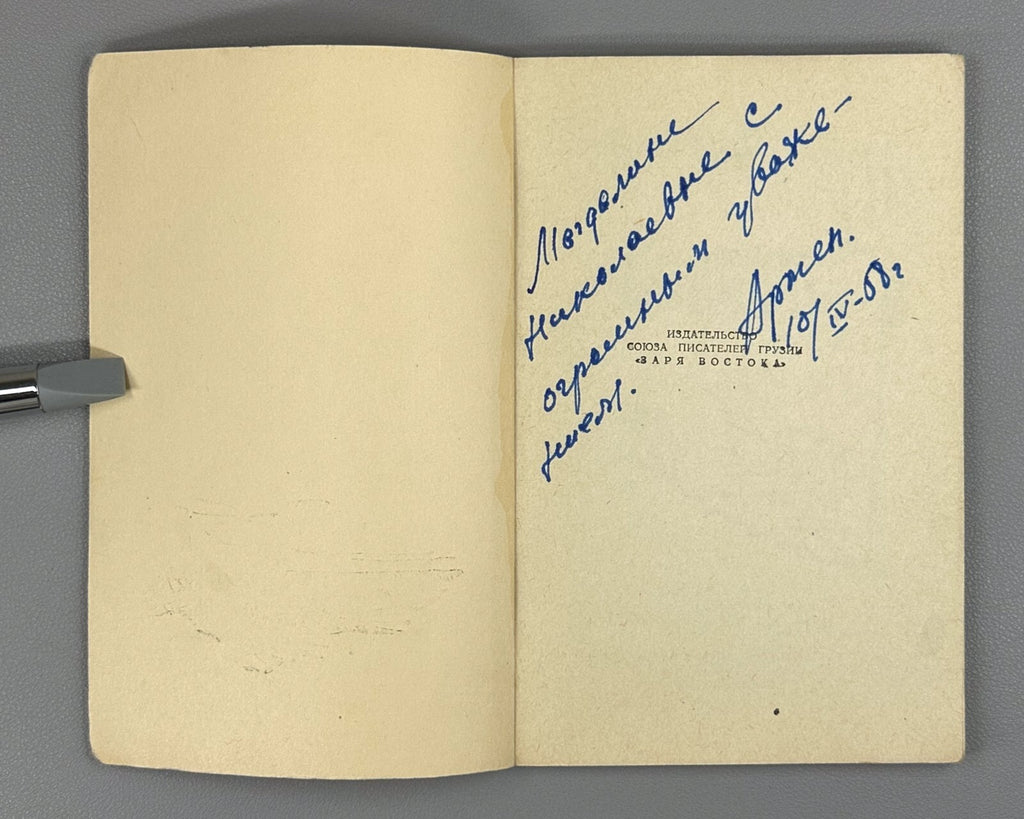 Магдалине
Николаевне с
огромным уваже-
нием.
Армен.
10/IV-68г
ИЗДАТЕЛЬСТВО
СОЮЗА ПИСАТЕЛЕЙ ГРУЗИИ
«ЗАРЯ ВОСТОКА»